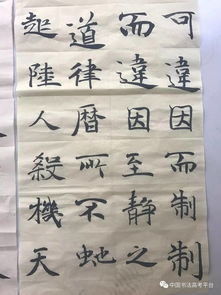 可違因而制制
而違因至靜之
道律曆所不虵
起陸人殺機天
中国书法高考平台